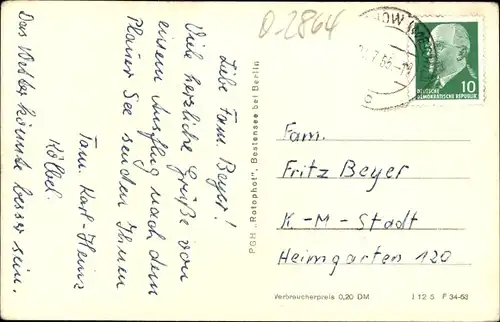 D-2864
Liebe Fam. Beyer!
Viele herzliche Grüße von
einem Ausflug nach dem
Plauer See senden Ihnen
Fam. Karl-Heinz
Kölbel.
Das Wetter könnte besser sein.
PGH „Rotophot", Bestensee bei Berlin
10
DEUTSCHE
DEMOKRATISCHE REPUBLIK
Fam.
Fritz Beyer
K-M-Stadt
Heimgarten 120
Verbraucherpreis 0,20 DM
I 12 5 F 34-63